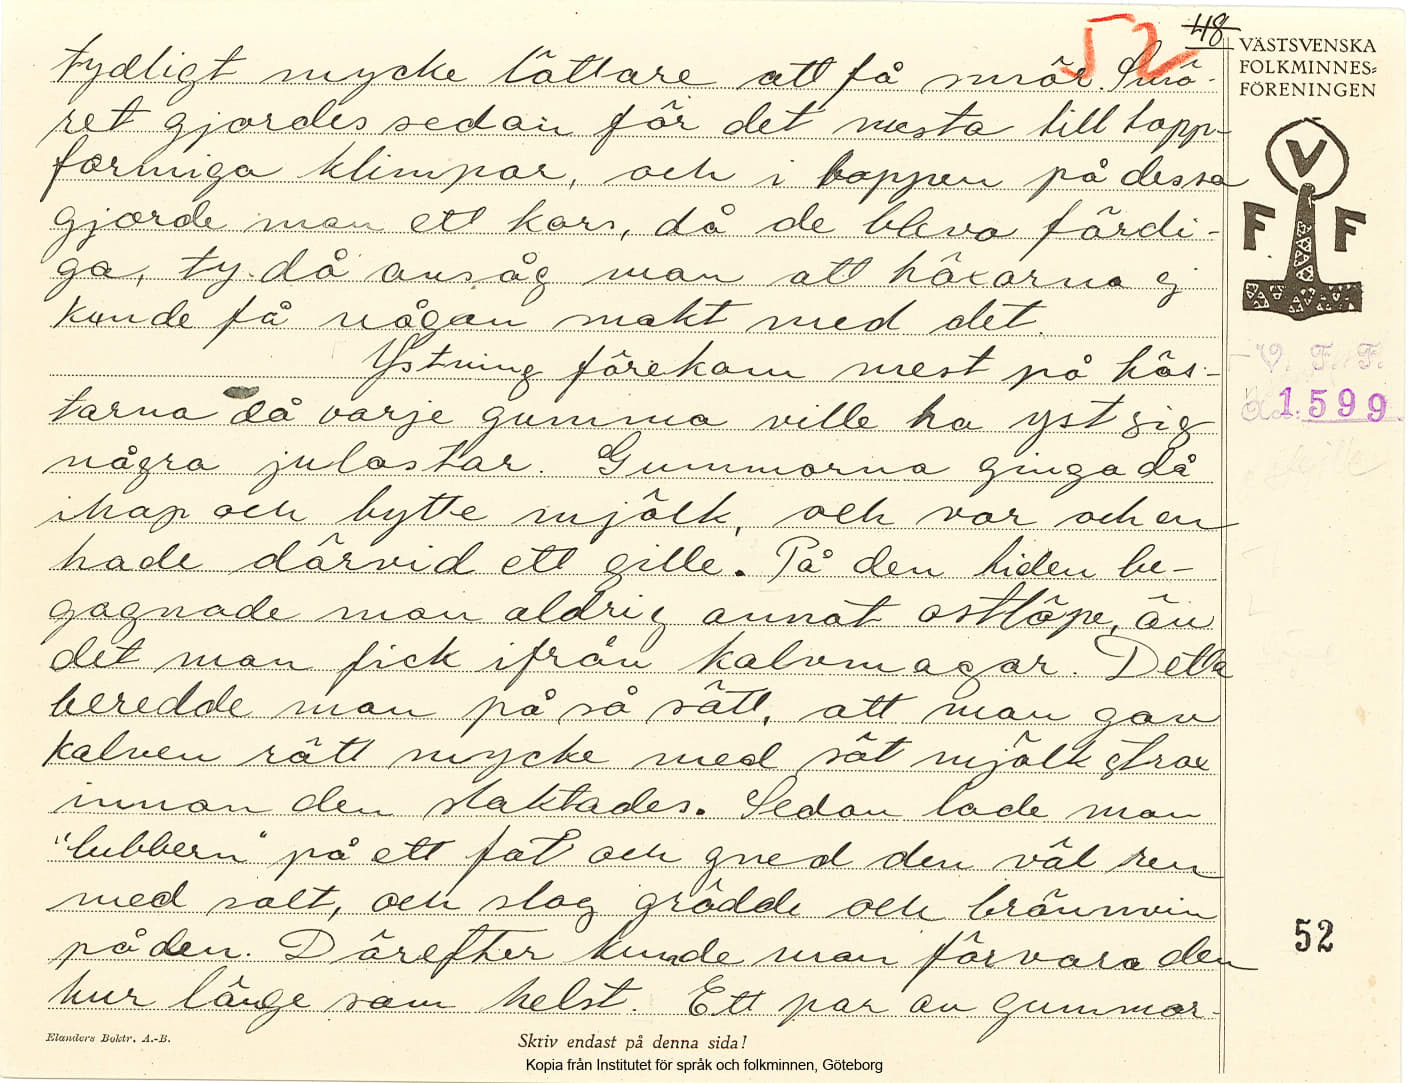 52 48
VÄSTSVENSKA
FOLKMINNES=
FÖRENINGEN
tydligt mycke lättare att få smör. Smö-
ret gjordes sedan för det mesta till topp-
formiga klimpar, och i toppen på dessa
gjorde man ett kors, då de bleva färdi-
ga, ty då ansåg man att häxorna ej
kunde få någon makt med det.
Ystning förekom mest på hös-
tarna då varje gumma ville ha yst sig
några julostar. Gummorna gingo då
ihop och bytte mjölk, och var och en
hade därvid ett gille. På den tiden be-
gagnade man aldrig annat ostlöpe, än
det man fick ifrån kalvmagar. Detta
beredde man på så sätt, att man gav
kalven rätt mycke med söt mjölk strax
innan den slaktades. Sedan lade man
"lubbern" på ett fat och gned den väl ren
med salt, och slog grädde och brännvin
på den. Därefter kunde man förvara den
hur länge som helst. Ett par av gummor-
V
F F
V. F. F.
1599
52
Elanders Boktr. A.-B.
Skriv endast på denna sida!
Kopia från Institutet för språk och folkminnen, Göteborg